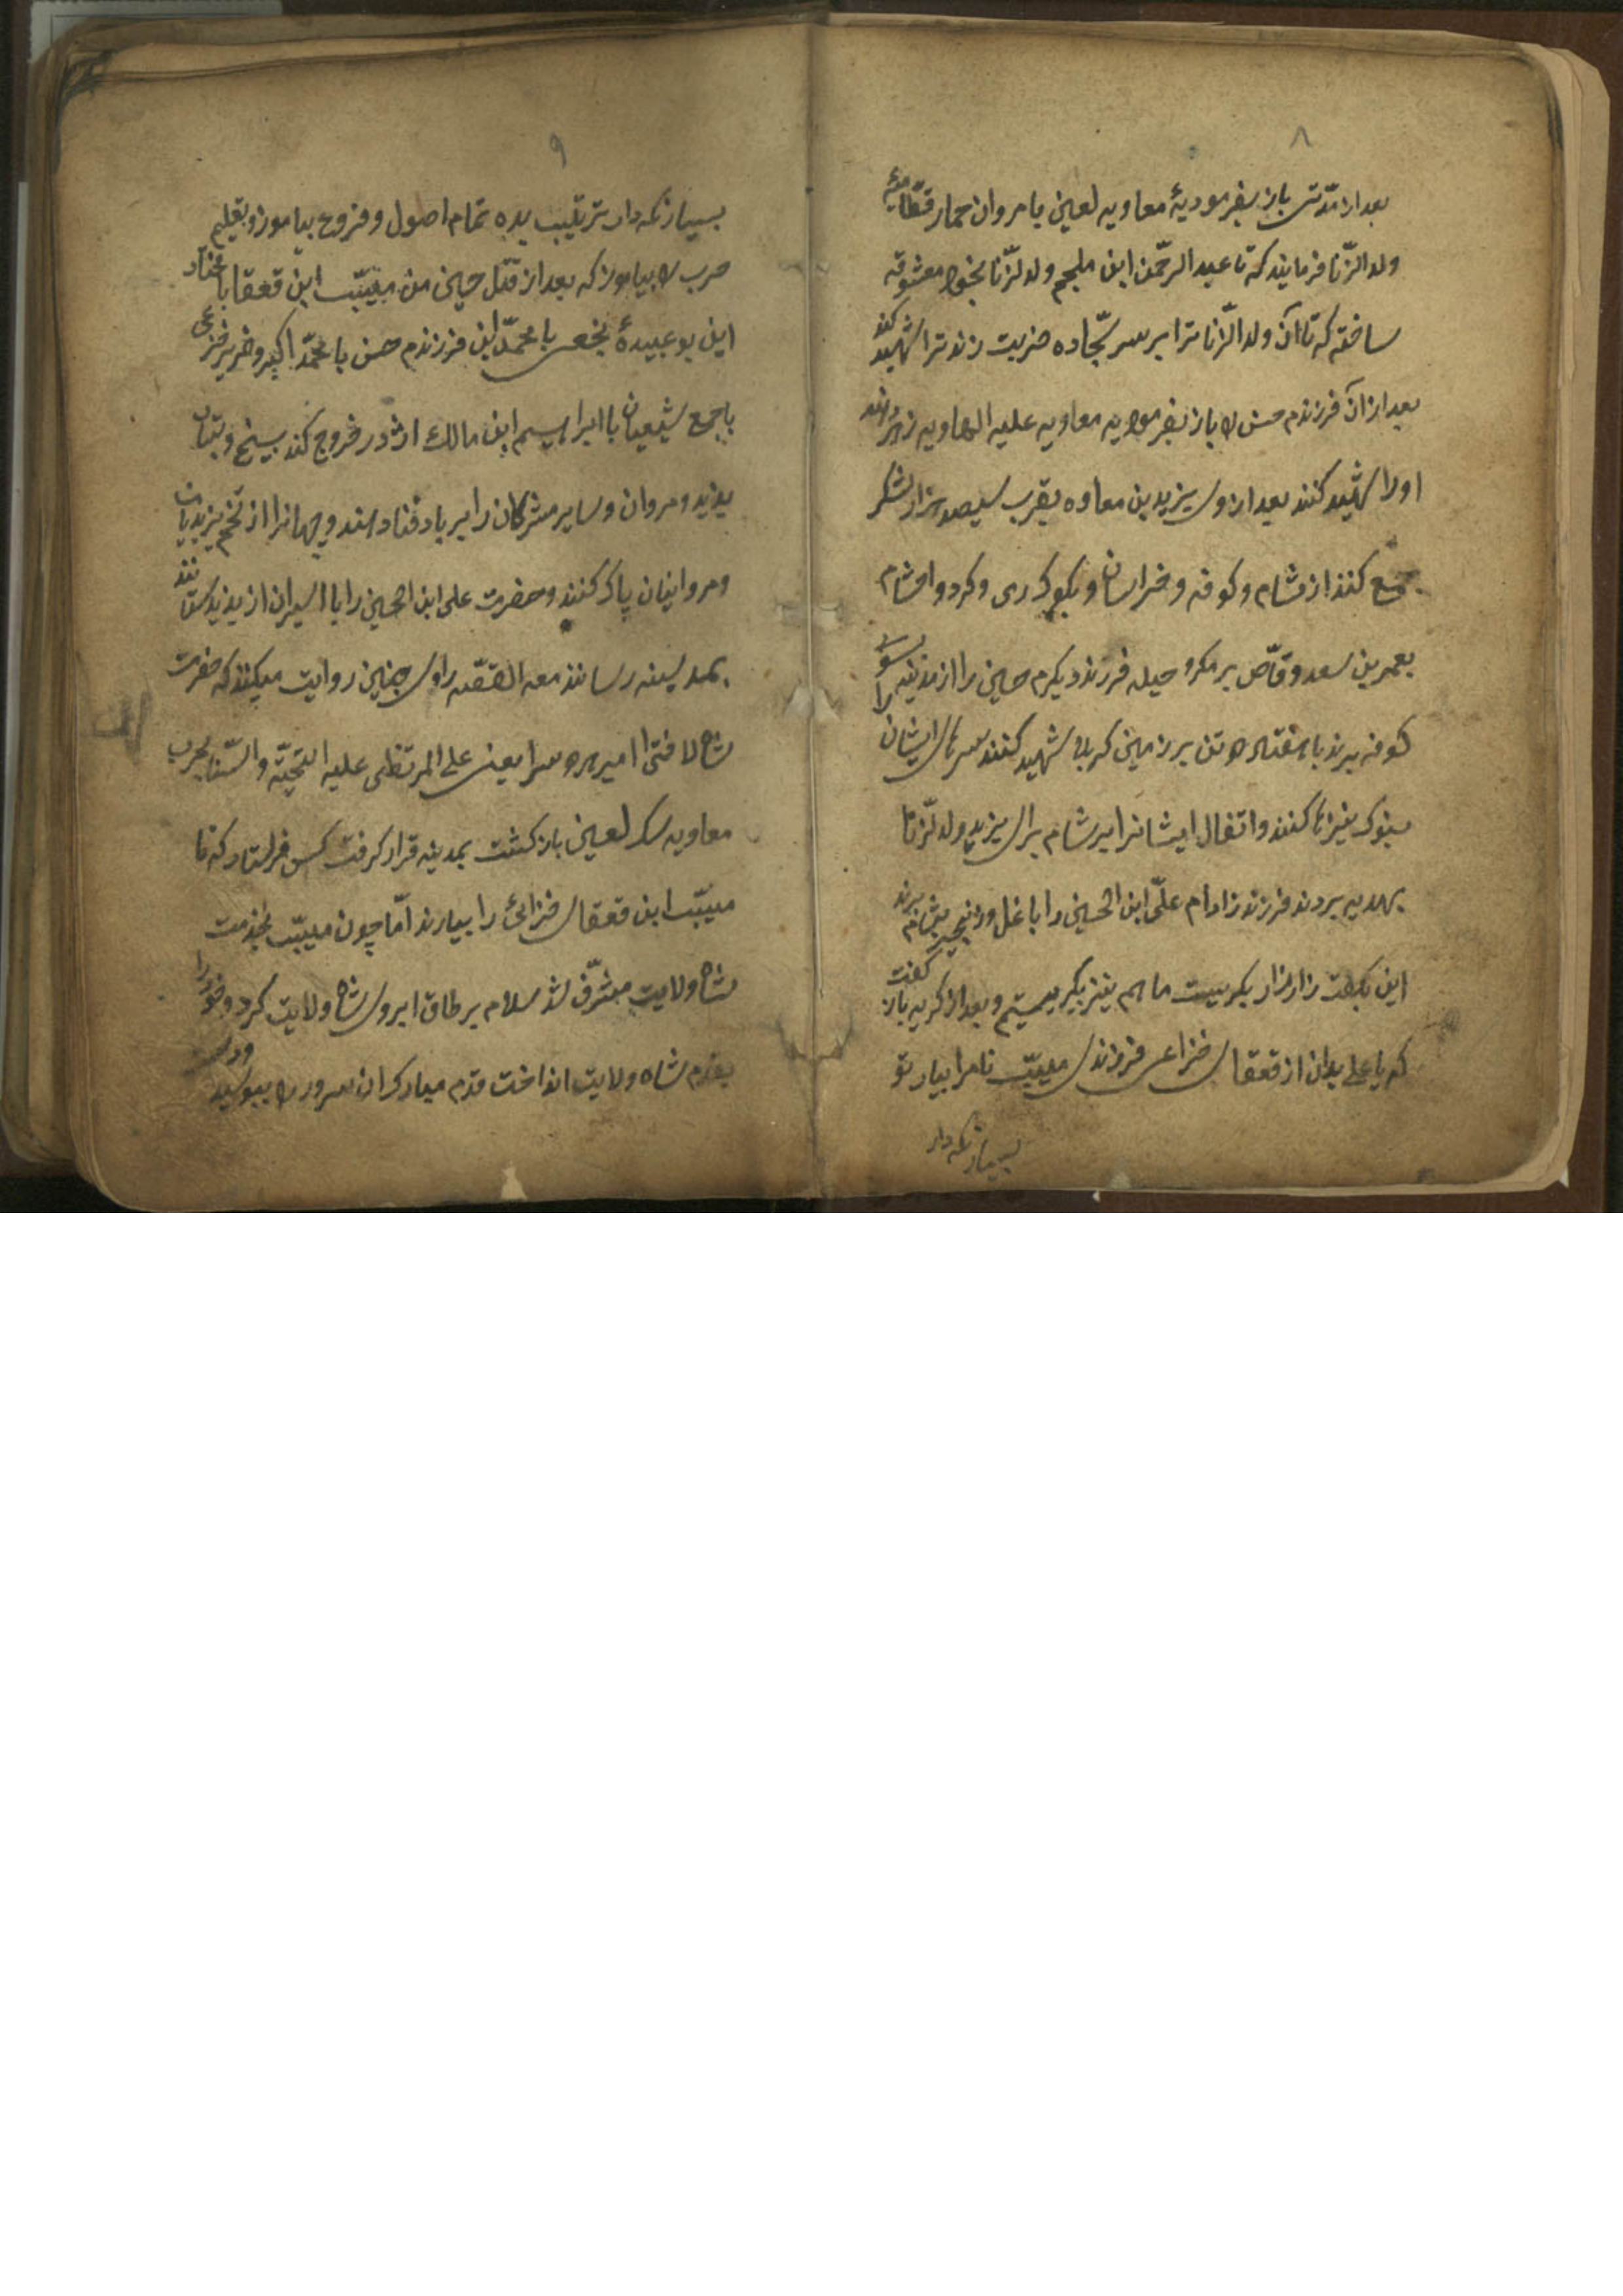 ۸
بعد از مدّتی باز بفرمودیهٔ معاویه لعین با مروان حمار قطّامهٔ
ولد الزّنا فرمایند که تا عبد الرحمن ابن ملجم ولد لزّنا بخود معشوقه
ساخته که تا آن ولد الزّنا ترا بر سر سجّاده ضربت زند ترا شهید کند
بعد از آن فرزندم حسن را باز بفرمودیه معاویه علیه الهاویه زهر دهند
اورا شهید کنند بعد از وی یزید بن معاوه بقرب سیصد هزار لشکر
جمع کنند از شام و کوفه و خراسان و کرد و
بعمر بن سعد وقّاص بر مکر و حیله فرزند دیکرم حسین را از مدینه بسوی
کوفه برند با هفتاد و دو تن بر زمین کربلا شهید کنند سرهای ایشان
بنوک نیزها کنند و اتفال ایشانرا بر شام برای یزید ولد لزّنا
بهدیه بردند فرزند زاده‌ام علّی ابن الحسین را با غل و زنجیر بشام برند
این بکفت زار زار بکریست ما هم نیز بکریستیم و بعد از کریه باز کفت
که یا علی بدان از قعقاای خزاعی فرزندی مسیّب نام را بیار تو
بسیار نکه دار
۹
بسیار نکه دار تربیت بده تمام اصول و فروع بیاموز و بتعلیم
حرب را بیاموز که بعد از قتل حسین من مسیّب ابن قعقا با مختار
ابن بوعبیدهٔ نخعی با محمّد ابن فرزندم حسن با محمّد اکبر و خریر خزعی
با جمع شیعیان با ابراهیم ابن مالک اژدر خروج کند بسیخ و بنیان
یزید و مروان و سایر مشرکان را بر باد فنا دهند و جهانرا از تخم یزیدیان
و مروانیان پاک کنند و حضرت علی ابن الحسین را با اسیران از یزید بستانند
بمدینه رسانند معه القصّه راوی چنین روایت میکند که حضرت
شاه لافتی امیر هر دو سرا یعنی علی المرتظی علیه التحیّه و السّنا بحرب
معاویه سک لعین باز کشت بمدینه قرار کرفت کس فرستاد که تا
مسیّب ابن قعقای خزائی را بیارند امّا چون مسیّب بخدمت
شاه ولایت مشرّف شد سلام بر طاق ابروی شاه ولایت کرد و خود را
بقدم شاه ولایت انداخت قدم مبارک ان سرور را ببوسید